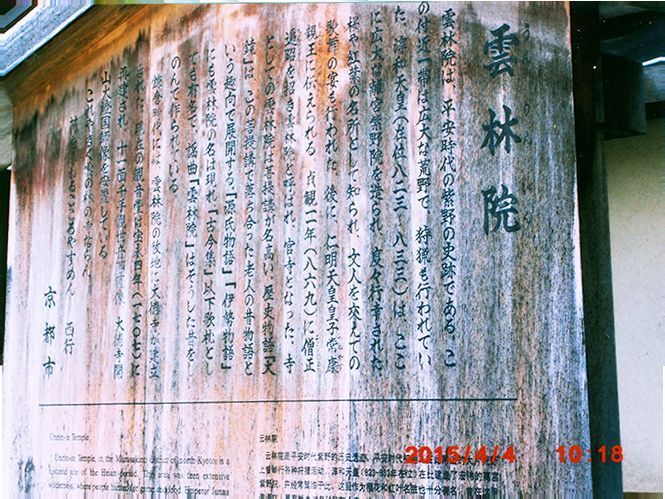 雲林院
雲林院は、平安時代の紫野の史跡である。こ
の付近一帯は広大な荒野で、狩猟も行われてい
た。淳和天皇(在位八二三〜八三三)は、ここ
に広大な離宮紫野院を造られ、度々行幸された。
桜や紅葉の名所として知られ、文人を交えての
歌舞の宴も行われた。後に、仁明天皇皇子常康
親王に伝えられる。貞観一年(八六九)に僧正
遍昭を招き雲林院と呼ばれ、官寺となった。寺
としての雲林院は菩提講が名高い。歴史物語「大
鏡」は、この菩提講で落ち合った老人の昔物語と
いう趣向で展開する。「源氏物語」「伊勢物語」
にも雲林院の名は現れ「古今集」以下歌札とし
ても有名で、謡曲「雲林院」はそうした昔をし
のんで作られている。
鎌倉時代には、雲林院の敷地に大徳寺が建立
された。現在の観音堂は宝永四年(一七〇七)に
再建され、十一面千手観世音菩薩像、大徳寺開
山大燈国師像を安置している。
これやきく雲の林の寺ならん
花を るこころやすめん 西行
京都市
Unrin-in Temple
Unrin-in Temple, in the Murasakino district of north Kyoto, is a
historic site of the Heian period. This area was then extensive
wilderness, where people hunted for game and food. Emperor Junna
云林院
云林院是平安时代紫野的历史遗迹。平安时代
上曾举行各种狩猎活动。淳和天皇(823-833年在位)在此建造了宏伟的离宫
2015/4/4 10:18